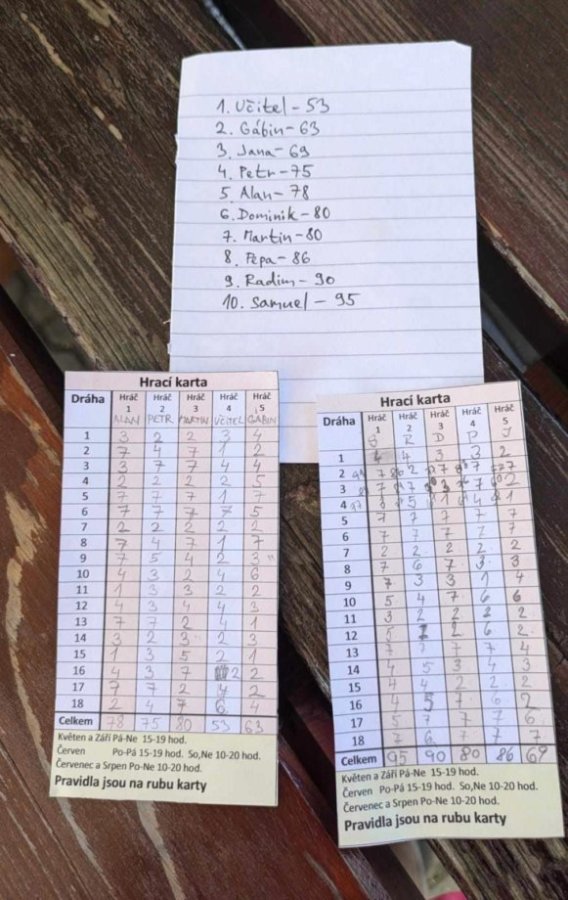 1. Učitel - 53
2. Gábin - 63
3. Jana - 69
4. Petr - 75
5. Alan - 78
6. Dominik - 80
7. Martin - 80
8. Pepa - 86
9. Radim - 90
10. Samuel - 95
Hrací karta
Dráha Hráč 1 Hráč 2 Hráč 3 Hráč 4 Hráč 5
ALAN PETR MARTIN UČITEL GÁBIN
1 3 2 2 3 4
2 7 4 7 1 2
3 3 7 7 4 4
4 2 2 2 2 5
5 7 7 7 1 7
6 7 7 7 7 5
7 2 2 2 2 2
8 7 4 7 1 7
9 7 5 4 2 3
10 4 3 2 4 6
11 1 3 3 2 2
12 4 3 4 4 3
13 7 7 2 4 1
14 3 2 3 2 3
15 1 3 5 2 1
16 4 3 7 2 2
17 7 7 2 4 2
18 2 4 7 6 4
Celkem 78 75 80 53 63
Květen a Září Pá-Ne 15-19 hod.
Červen Po-Pá 15-19 hod. So,Ne 10-20 hod.
Červenec a Srpen Po-Ne 10-20 hod.
Pravidla jsou na rubu karty
Hrací karta
Dráha Hráč 1 Hráč 2 Hráč 3 Hráč 4 Hráč 5
S R D P J
1 4 4 3 3 2
2
3
4
5 7 7 7 7 7
6 7 7 7 7 7
7 2 2 2 2 2
8 7 6 7 3 3
9 7 3 3 1 4
10 5 4 7 6 6
11 3 2 2 2 2
12 5 2 6 2
13 7 7 7 7 4
14 4 5 3 4 3
15 4 4 2 2 2
16 4 5 7 6 2
17 5 7 7 7 6
18 7 6 7 7 7
Celkem 95 90 80 86 69
Květen a Září Pá-Ne 15-19 hod.
Červen Po-Pá 15-19 hod. So,Ne 10-20 hod.
Červenec a Srpen Po-Ne 10-20 hod.
Pravidla jsou na rubu karty